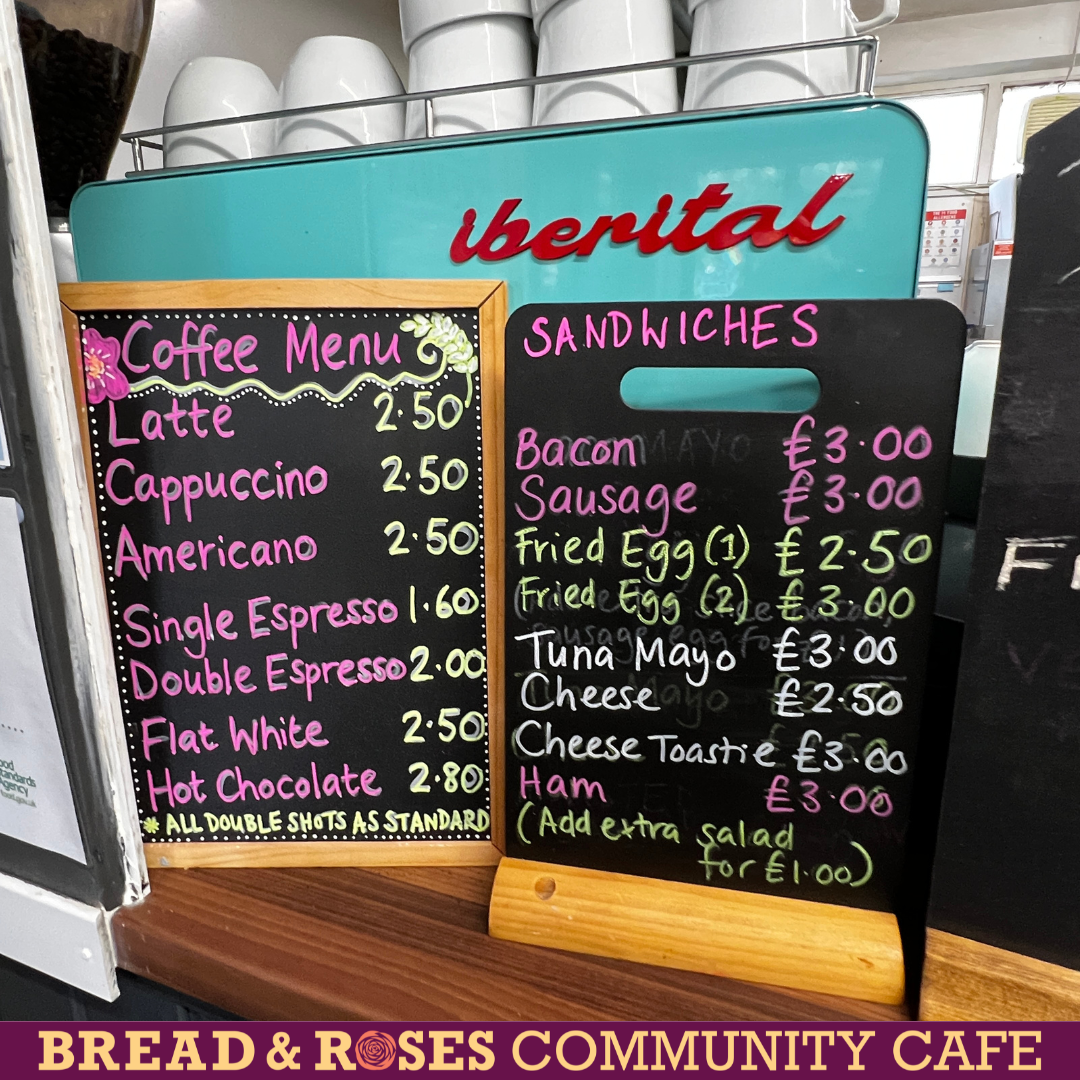 iberital
Coffee Menu
Latte 2.50
Cappuccino 2.50
Americano 2.50
Single Espresso 1.60
Double Espresso 2.00
Flat White 2.50
Hot Chocolate 2.80
* ALL DOUBLE SHOTS AS STANDARD
SANDWICHES
Bacon £3.00
Sausage £3.00
Fried Egg (1) £2.50
Fried Egg (2) £3.00
Tuna Mayo £3.00
Cheese £2.50
Cheese Toastie £3.00
Ham £3.00
(Add extra salad
for £1.00)
BREAD & ROSES COMMUNITY CAFE